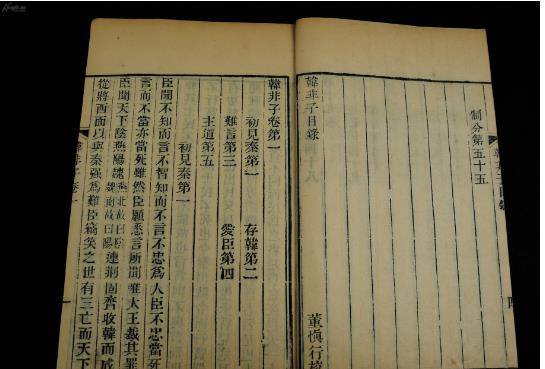 制分第五十五
韓非子目錄
董慎行校
韓非子卷第一
初見秦第一 存韓第二
難言第三 愛臣第四
主道第五
初見秦第一
臣聞不知而言不智知而不言不忠為人臣不忠當死
言而不當亦當死雖然臣願悉言所聞唯大王裁其罪
臣聞天下陰燕陽魏燕北故曰陰魏南故曰陽連荊固齊收韓而成
從將西面以與秦强為難臣竊笑之世有三亡而天下
韓非子卷一
一